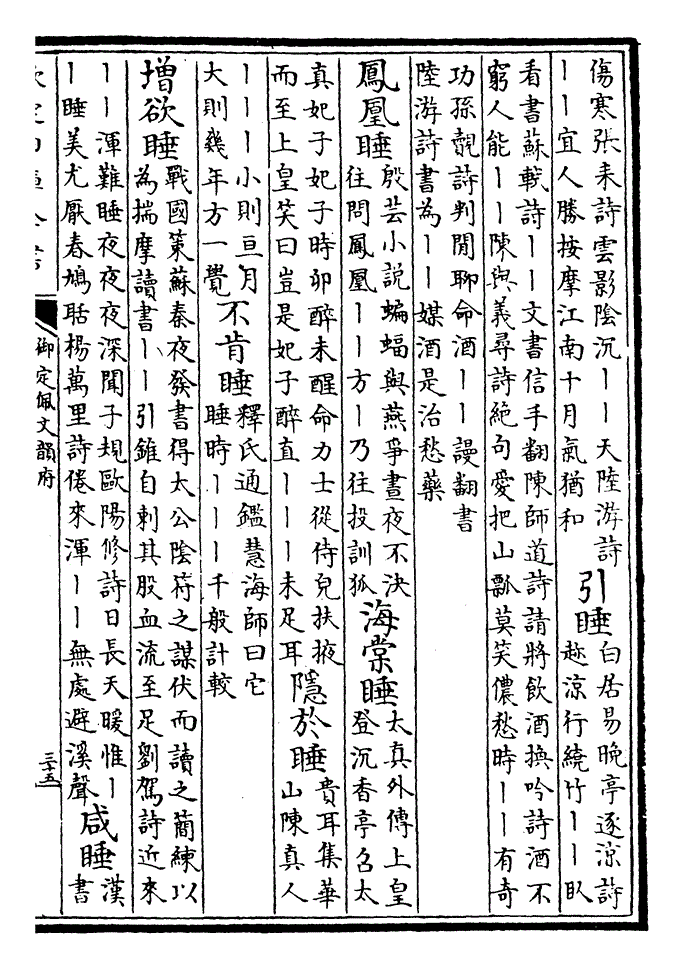 傷寒張耒詩雲影陰沉丨丨天陸游詩
丨丨宜人勝按摩江南十月氣猶和
引睡
白居易晚亭逐涼詩
趂涼行繞竹丨丨臥
看書蘇軾詩丨丨文書信手翻陳師道詩請將飲酒換吟詩酒不
窮人能丨丨陳與義尋詩絶句愛把山瓢莫笑儂愁時丨丨有奇
功孫覿詩判閒聊命酒丨丨謾翻書
陸游詩書為丨丨媒酒是治愁藥
鳳凰睡
殷芸小說蝙蝠與燕爭晝夜不決
往問鳳凰丨丨方丨乃往投訓狐
海棠睡
太真外傳上皇
登沉香亭召太
真妃子妃子時卯醉未醒命力士從侍兒扶掖
而至上皇笑曰豈是妃子醉直丨丨丨未足耳
隱於睡
貴耳集華
山陳真人
丨丨丨小則亘月
大則幾年方一覺
不肯睡
釋氏通鑑慧海師曰它
睡時丨丨丨千般計較
增欲睡
戰國策蘇秦夜發書得太公陰符之謀伏而讀之簡練以
為揣摩讀書丨丨引錐自刺其股血流至足劉駕詩近來
丨丨渾難睡夜夜夜深聞子規歐陽修詩日長天暖惟丨
丨睡美尤厭春鳩聒楊萬里詩倦來渾丨丨無處避溪聲
咸睡
漢
書
御定佩文韻府
三十五